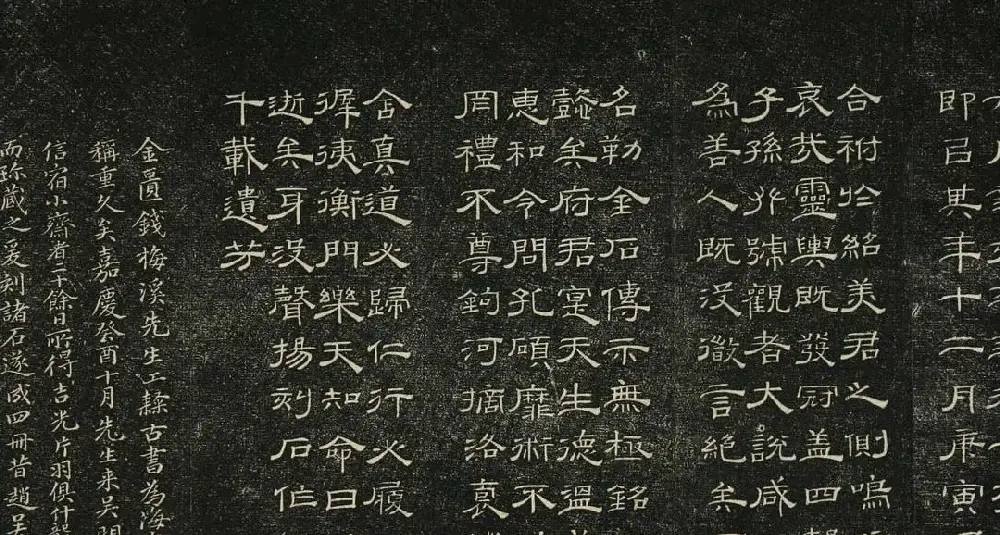 即㠯其年十二月庚寅
合祔於紹美君之側嗚
哀哉靈輿既發冠盖四
子孫號觀者大說咸
為善人既没微言絕矣
名勒金石傳示無極銘
懿矣府君寔天生德溫
惠和令問孔碩靡術不
罔禮不尊鉤河摘洛
含真道必歸仁行必履
徲衡門樂天知命曰
逝矣身没聲揚刻石作
千載遺芳
金匱錢梅溪先生工隸古書為海
稱重久矣嘉慶癸酉十月先生来吴門
信宿小齋者二十餘日所得吉光片羽俱什襲
而珍藏之爰刻諸石遂成四冊昔趙吴